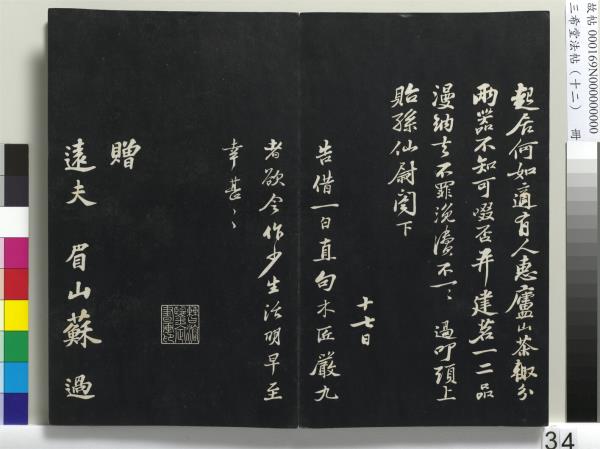 起居何如適有人惠廬山茶輙分
兩器不知可啜否并建茗一二品
漫納去不罪浼瀆不一〻 過叩頭上
貽孫仙尉閣下
十七日
告借一日直句木匠嚴九
者欲令作少生活明早至
幸甚〻
贈
遠夫 眉山蘇過
故帖 000169N000000000
三希堂法帖(十二) 冊
34